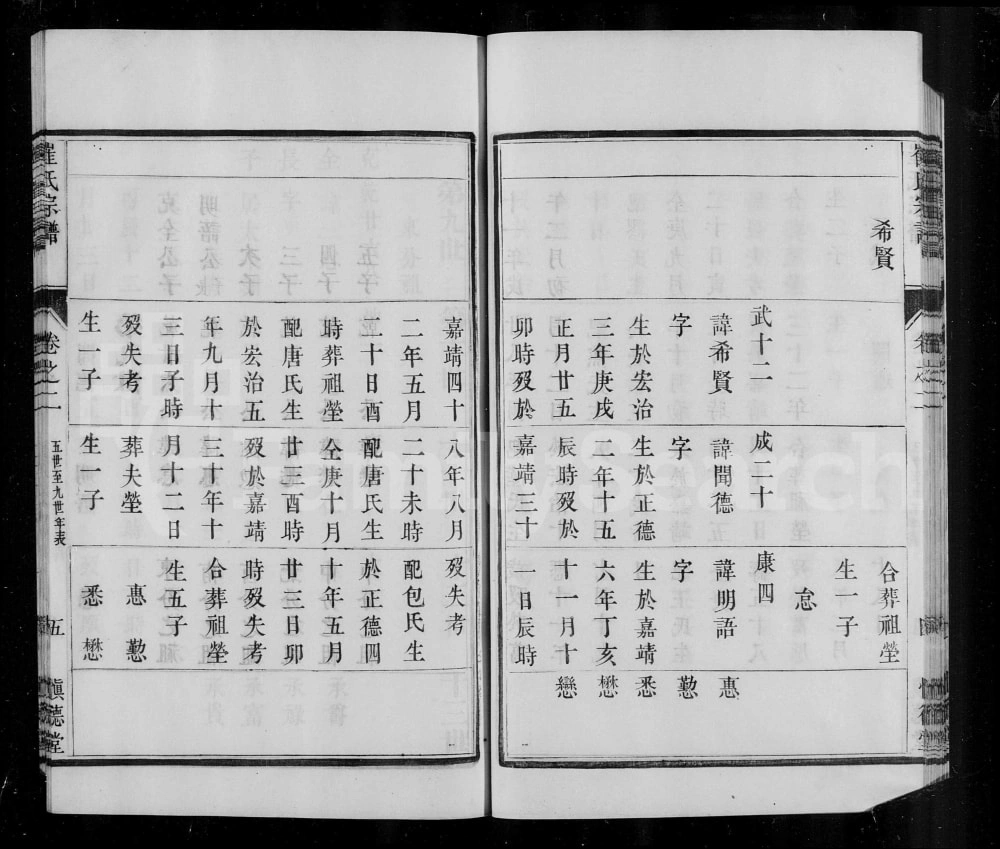 崔氏宗譜
卷之二
希賢
武十二
諱希賢
字
生於宏治
三年庚戌
正月廿五
卯時歿於
成二十
諱聞德
字
生於正德
二年十五
辰時歿於
嘉靖三十
合葬祖塋
生一子
怠
康四
諱明語
字
生於嘉靖
六年丁亥
十一月十
一日辰時
惠
懃
悉
懋
戀
嘉靖四十
二年五月
二十日酉
時葬祖塋
配唐氏生
於宏治五
年九月十
三日子時
歿失考
生一子
八年八月
二十未時
配唐氏生
仝庚十月
廿三酉時
歿於嘉靖
三十年十
月十二日
葬夫塋
生一子
歿失考
配包氏生
於正德四
十年五月
廿三日卯
時歿失考
合葬祖塋
生五子
惠 懃
悉 懋
崔氏宗譜
卷之二
五世至九世年表
五
慎德堂